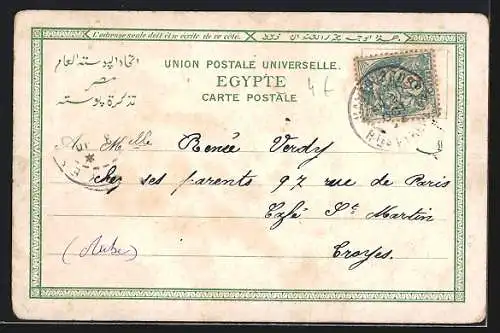 L'adresse seule doit être écrite de ce côté.
اتحاد البوستة العام
مصر
تذكرة بوسته
UNION POSTALE UNIVERSELLE.
EGYPTE
CARTE POSTALE
4 f
Melle Renée Verdy
chez ses parents 97 rue de Paris
St Martin
(Aube) Troyes.